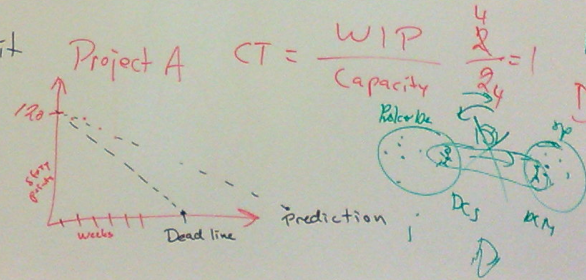 Project A
CT = WIP / Capacity
4
2
2 4
= 1
120
Story points
weeks
Dead line
Prediction
DCS
DCM